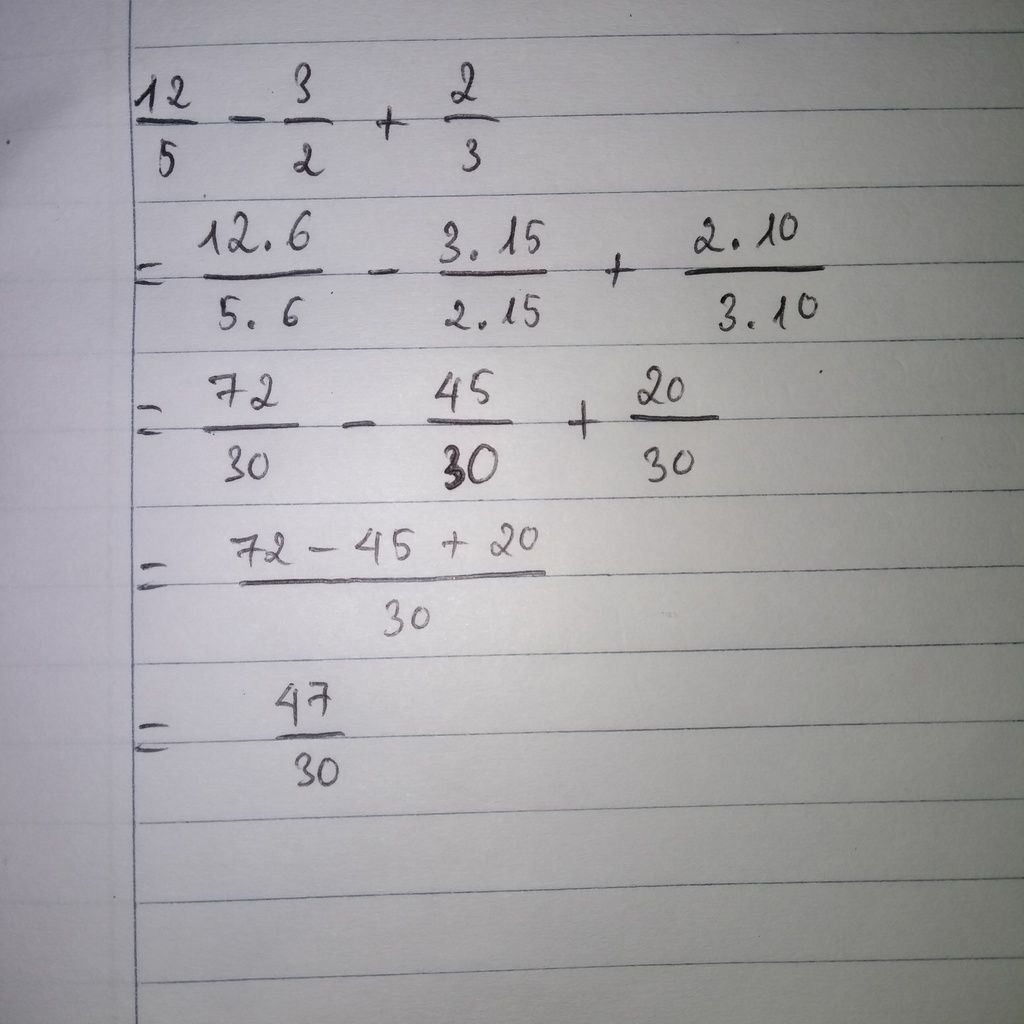 12/5 - 3/2 + 2/3
= 12.6/5.6 - 3.15/2.15 + 2.10/3.10
= 72/30 - 45/30 + 20/30
= (72 - 45 + 20)/30
= 47/30